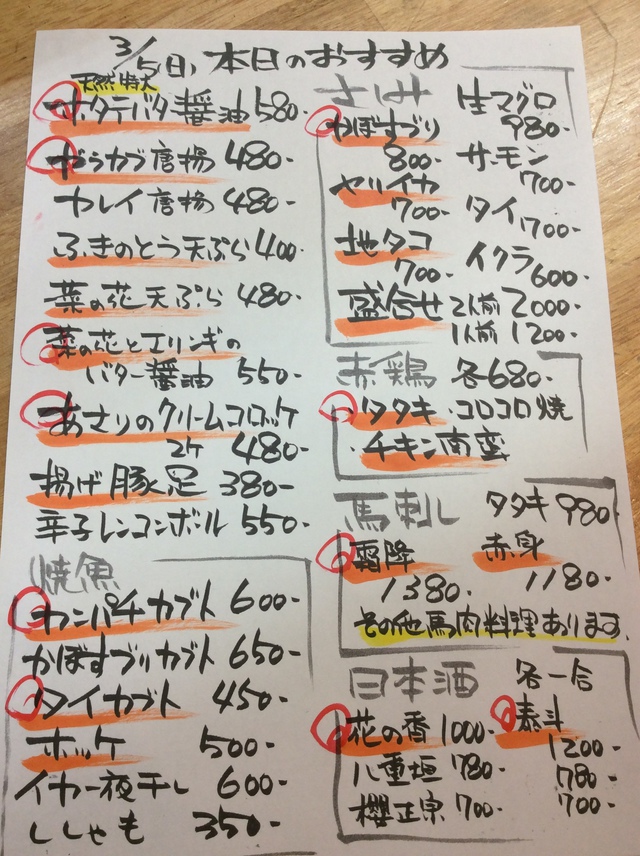 3/5(日)本日のおすすめ
天然特大
ホタテバター醤油 580-
がらかぶ唐揚 480-
カレイ唐揚 480-
ふきのとう天ぷら 400-
菜の花天ぷら 480-
菜の花とエリンギの
バター醤油 550-
あさりのクリームコロッケ
2ケ 480-
揚げ豚足 380-
辛子レンコンボール 550-
焼魚
カンパチカブト 600-
かぼすぶりカブト 650-
タイカブト 450-
ホッケ 500-
イカ一夜干し 600-
ししゃも 350-
さしみ
かぼすぶり
800-
ヤリイカ
700-
地タコ
700-
生マグロ
980-
サーモン
700-
タイ
700-
イクラ
600-
盛合せ 2人前 2000-
1人前 1200-
赤鶏 各680-
・タタキ・コロコロ焼
・チキン南蛮
馬刺し タタキ 980
霜降 赤身
1380- 1180-
その他馬肉料理あります
日本酒 各一合
花の香 1000- 泰斗
1200-
八重垣 780- 780-
櫻正宗 700- 700-